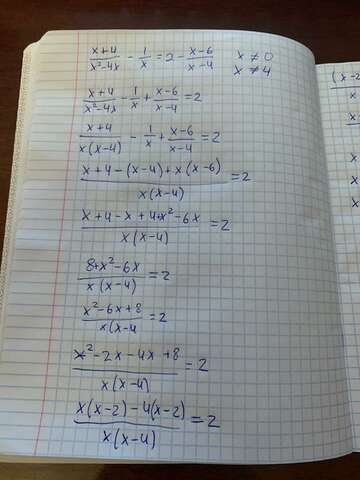 (x+4)/(x²-4x) - 1/x = 2 - (x-6)/(x-4) x ≠ 0
x ≠ 4
(x+4)/(x²-4x) - 1/x + (x-6)/(x-4) = 2
(x+4)/(x(x-4)) - 1/x + (x-6)/(x-4) = 2
(x+4-(x-4)+x(x-6))/(x(x-4)) = 2
(x+4-x+4+x²-6x)/(x(x-4)) = 2
(8+x²-6x)/(x(x-4)) = 2
(x²-6x+8)/(x(x-4) = 2
(x²-2x-4x+8)/(x(x-4)) = 2
(x(x-2)-4(x-2))/(x(x-4)) = 2
(x-2
x
x
x
x